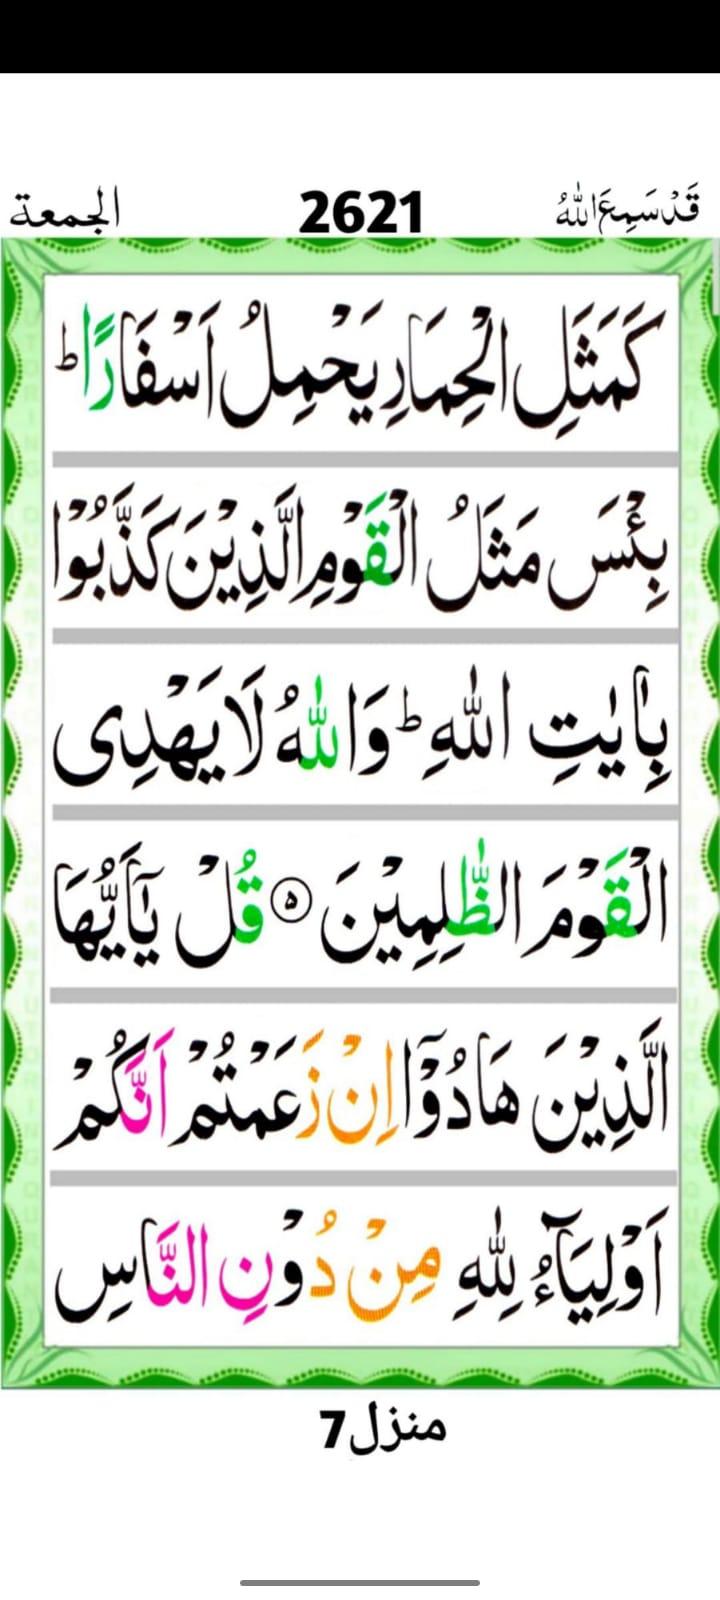 قَدْ سَمِعَ اللّٰهُ
2621
الجمعة
كَمَثَلِ الْحِمَارِ يَحْمِلُ اَسْفَارًا ؕ
بِئْسَ مَثَلُ الْقَوْمِ الَّذِيْنَ كَذَّبُوْا
بِاٰيٰتِ اللّٰهِ ؕ وَاللّٰهُ لَا يَهْدِى
الْقَوْمَ الظّٰلِمِيْنَ ۝۵ قُلْ يٰۤاَيُّهَا
الَّذِيْنَ هَادُوْۤا اِنْ زَعَمْتُمْ اَنَّكُمْ
اَوْلِيَآءُ لِلّٰهِ مِنْ دُوْنِ النَّاسِ
منزل7